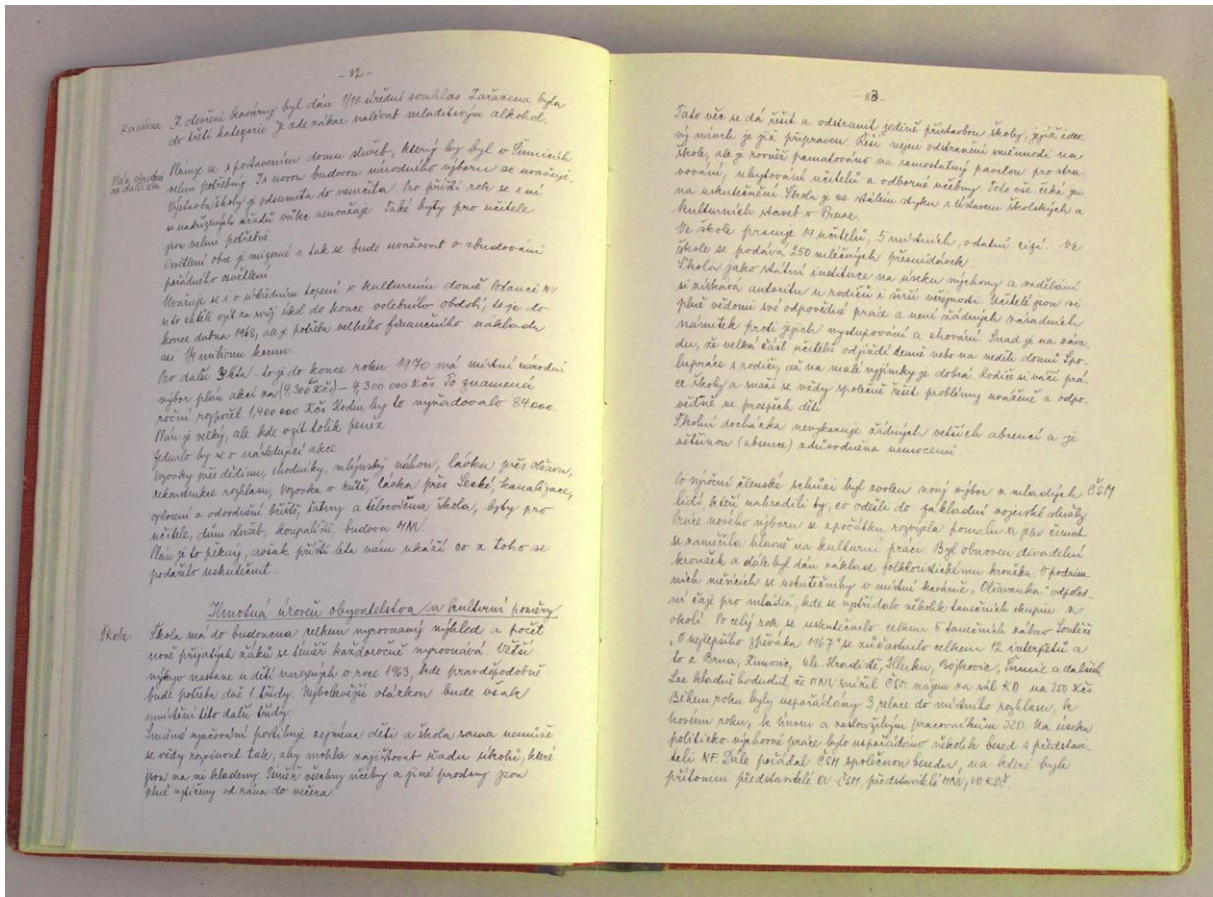 - 82 -
Kavárna K otevření kavárny byl dán 1/10 úřední souhlas Zařazena byla
do třetí kategorie Je zde zákaz nalévat mladistvým alkohol.
Plán výstavby na další léta
Plánuje se s postavením domu služeb, který by byl v Šumicích
velmi potřebný Is novou budovou národního výboru se uvažuje.
Výstavba školy je odsunuta do neurčita Pro příští rok se s ní
u nadřízených úřadů vůbec neuvažuje Také byty pro učitele
jsou velmi potřebné
Osvětlení obce je mizerné a tak se bude uvažovat o vbudování
pořádného osvětlení
Uvažuje se i o ústředním topení v kulturním domě Poslanci
si to chtěli vzít za svůj úkol do konce volebního období, to je do
konce dubna 1968, ale je potřeba velkého finančního nákladu
asi 1/4 milionu korun.
Pro další léta to je do konce roku 1970 má místní národní
výbor plán akcí za (4,300 Kčs) – 4,300.000 Kčs. To znamená
roční rozpočet 1,400 000 Kčs Hodin by to vyžadovalo 84000.
Plán je velký, ale kde vzít tolik peněz
Jednalo by se o následující akce:
Vozovky přes dědinu, chodníky, mlýnský náhon, lávku přes Olšavu,
rekonstrukce rozhlasu, vozovka v kutě, lávka přes Secké, kanalizace,
oplocení a odvodnění hřiště, šatny a tělocvična škola, byty pro
učitele, dům služeb, koupaliště, budova MNV.
Plán je to pěkný, avšak příští léta nám ukáží co z toho se
podařilo uskutečnit.
Hmotná úroveň obyvatelstva a kulturní poměry
Škola. Škola má do budoucna celkem vyrovnaný výhled a počet
nově přijatých žáků se téměř každoročně vyrovnává. Větší
výkyv nastane u dětí narozených v roce 1963, kde pravděpodobně
bude potřeba dvě 1 třídy. Nejbolavější otázkou bude však
umístění této další třídy.
Směnné vyučování postihuje zejména děti a škola sama nemůže
se vždy rozvinout tak, aby mohla zajišťovat řadu úkolů, které
jsou na ni kladeny. Téměř všechny učebny a jiné prostory jsou
plně vytíženy od rána do večera.
- 83 -
Tato věc se dá řešit a odstranit jedině přístavbou školy, jejíž ideo-
vý návrh je již připraven. Řeší nejen odstranění směnnosti na
škole, ale je rovněž pamatováno na samostatný pavilon pro stra-
vování, ubytování učitelů a odborné učebny. Toto vše čeká jen
na uskutečnění. Škola je ve stálém styku s Ústavem školských a
kulturních staveb v Praze.
Ve škole pracuje 19 učitelů, 5 místních, ostatní cizí. Ve
škole se podává 250 mléčných přesnídávek.
Škola jako státní instituce na úseku výchovy a vzdělání
si získává autoritu u rodičů i širší veřejnosti. Učitelé jsou si
plně vědomi své odpovědné práce a není žádných zásadních
námitek proti jejich vystupování a chování. Snad je na záva-
du, že velká část učitelů odjíždí denně nebo na neděli domů Spo-
lupráce s rodiči, až na malé vyjímky je dobrá. Rodiče si váží prá-
ce školy a snaží se vždy společně řešit problémy uváženě a odpo-
vědně ve prospěch dětí
Školní docházka nevykazuje žádných větších absencí a je
většinou (absence) zdůvodněna nemocemi
Po výroční členské schůzi byl zvolen nový výbor z mladých ČSM
lidí, kteří nahradili ty, co odešli do základní vojenské služby
Práce nového výboru se zpočátku rozvíjela pomalu a jeho činnost
se zaměřila hlavně na kulturní práci. Byl obnoven divadelní
kroužek a dále byl dán základ folkloristickému kroužku. V podzim-
ních měsících se uskutečnily v místní kavárně „Olšavanka" odpoled-
ní čaje pro mládež, kde se vystřídalo několik tanečních skupin z
okolí. Po celý rok se uskutečnilo celkem 5 tanečních zábav Soutěže
„O nejlepšího zpěváka 1967" se zúčastnilo celkem 12 interpretů a
to z Brna, Kunovic, Uh. Hradiště, Hluku, Bojkovic, Šumic a dalších.
Lze kladně hodnotit, že MNV snížil ČSM nájem za sál KD na 250 Kčs.
Během roku byly uspořádány 3 relace do místního rozhlasu, k
novém roku, k únoru a zasloužilým pracovníkům JZD. Na úseku
politicko výchovné práce bylo uspořádáno několik besed s představi-
teli NF. Dále pořádal ČSM společnou besedu, na které byli
přítomni představitelé OV-ČSM, představitelé MNV, VO KSČ.